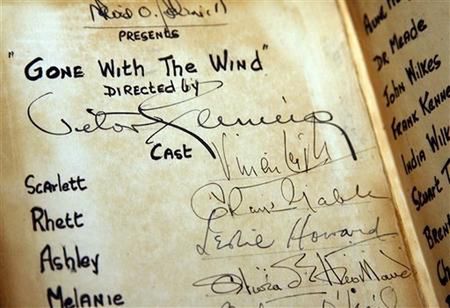 David O. Selznick
PRESENTS
"GONE WITH THE WIND"
DIRECTED BY
Victor Fleming
CAST
SCARLETT Vivien Leigh
RHETT Clark Gable
ASHLEY Leslie Howard
MELANIE Olivia de Havilland
DR MEADE
JOHN WILKES
FRANK
INDIA
STUART